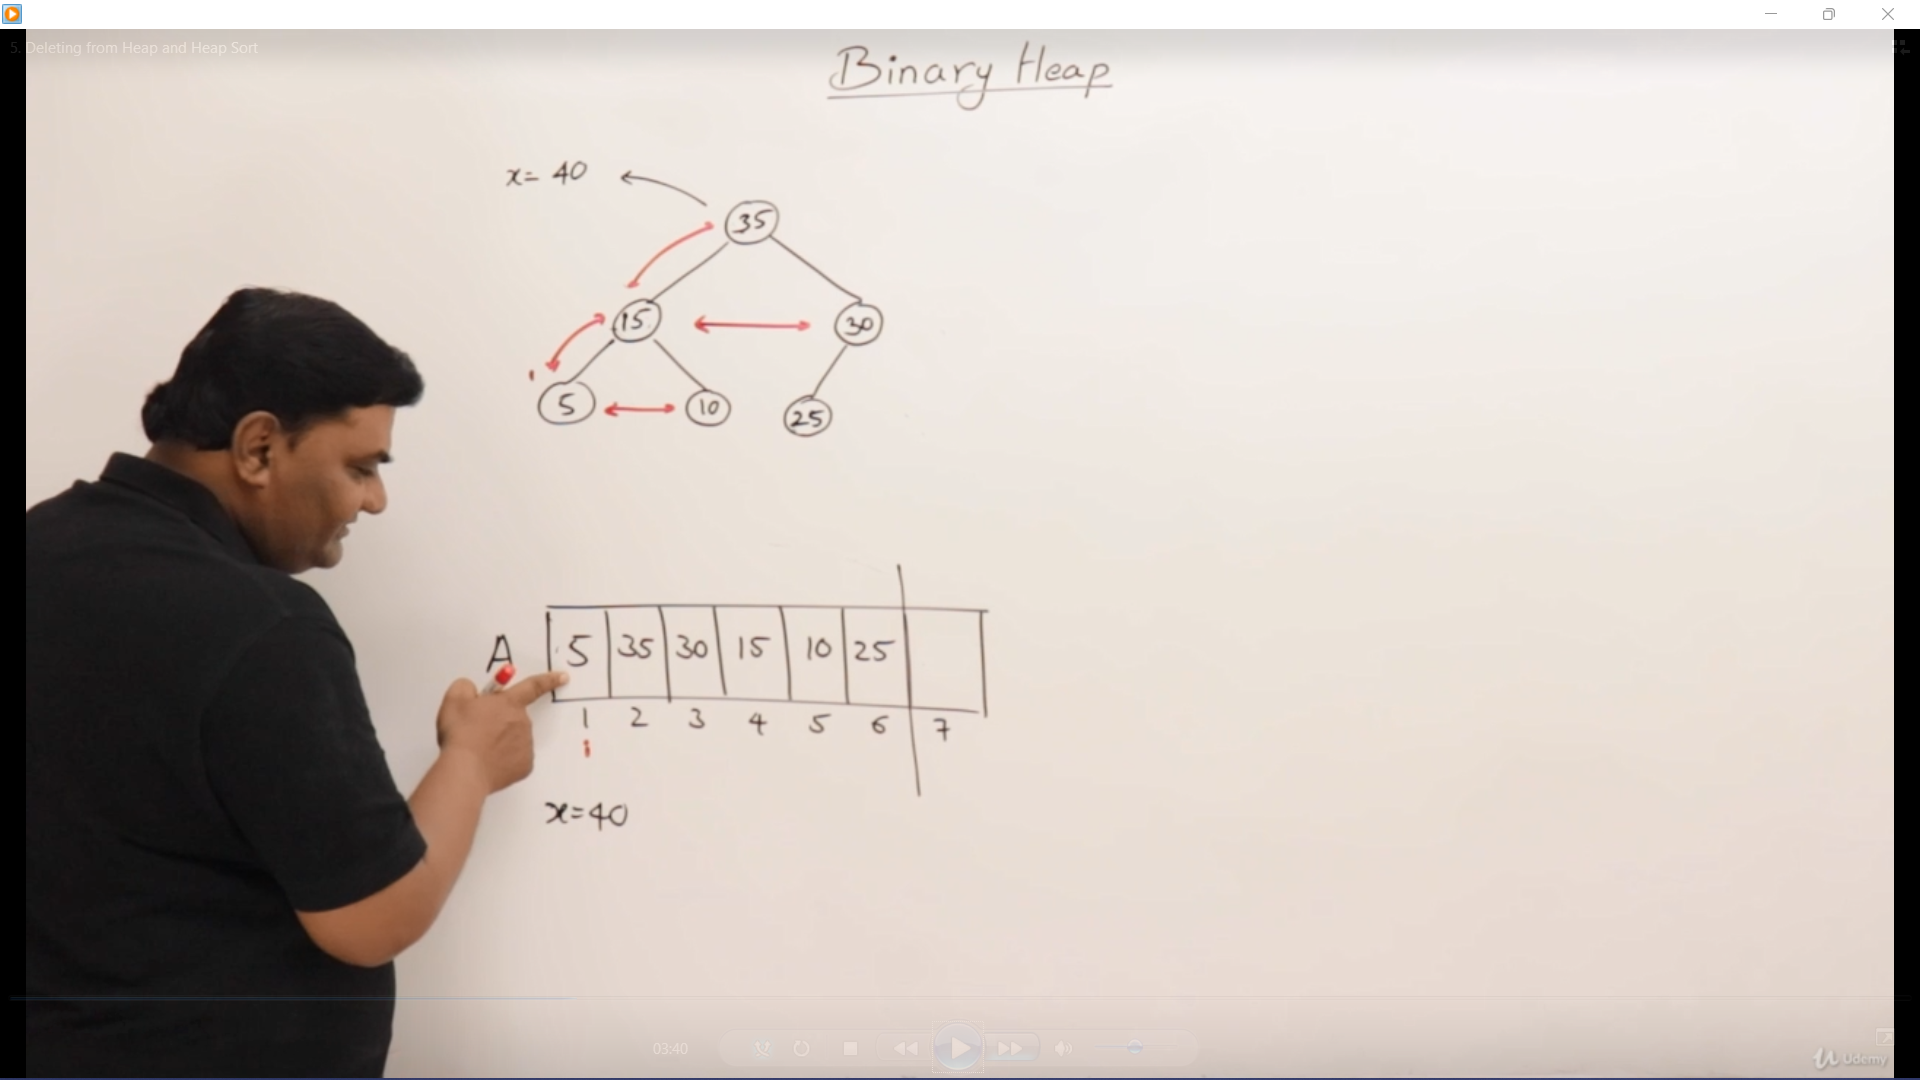 5. Deleting from Heap and Heap Sort
Binary Heap
x= 40
35
15 30
5 10 25
A 5 35 30 15 10 25
1 2 3 4 5 6 7
i
x=40
03:40
Udemy